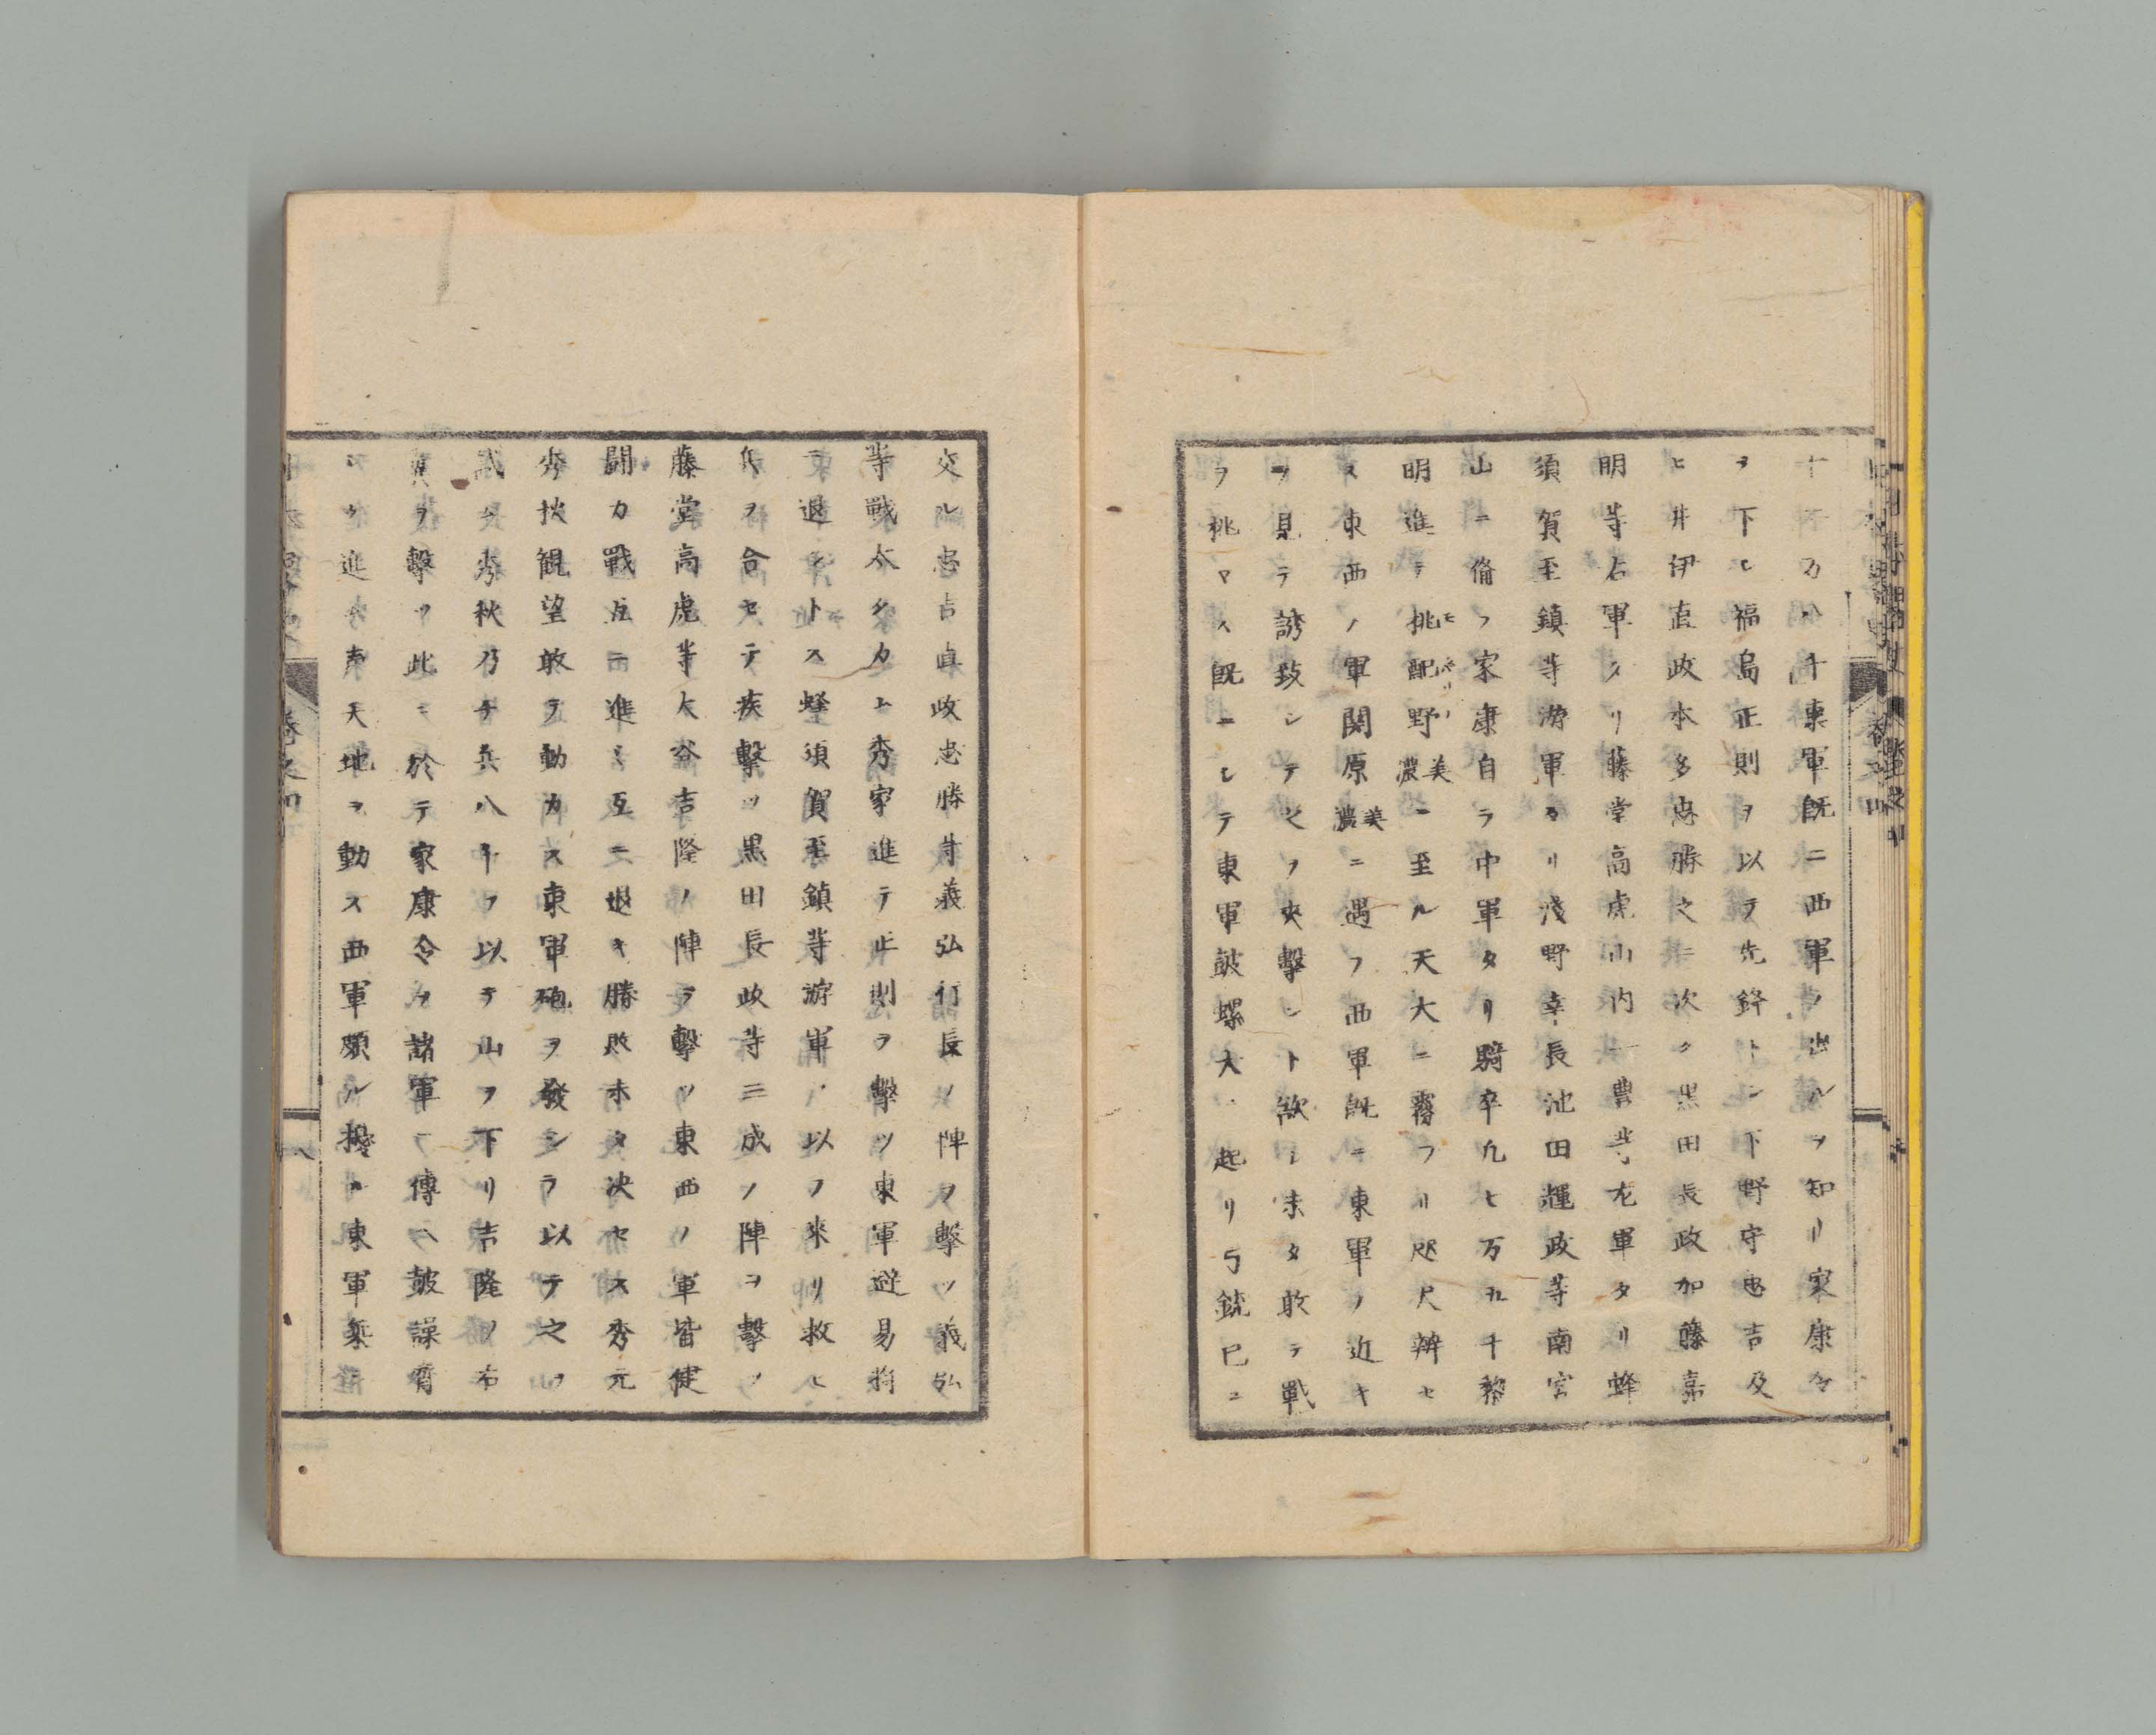 十万八千東軍既ニ西軍ノ出ルヲ知リ家康令
ヲ下シ福島正則ヲ以テ先鋒トシ下野守忠吉及
ヒ井伊直政本多忠勝之ニ次ク黒田長政加藤嘉
明等右軍タリ藤堂高虎山内一豊等左軍タリ蜂
須賀至鎮等游軍タリ浅野幸長池田輝政等南宮
山ニ備フ家康自ラ中軍タリ騎卒凡七万五千黎
明進テ桃配野美濃ニ至ル天大ニ霧フリ咫尺辨セ
ス東西ノ軍関原美濃ニ遇フ西軍既ニ東軍ノ近キ
ヲ見テ誘致シテ之ヲ夾撃シト欲シ未タ敢テ戰
ヲ挑マス既ニシテ東軍鼓螺大ニ起リ弓銃已ニ
交ル忠吉直政忠勝等義弘行長ノ陣ヲ撃ツ義弘
等戰太タ力ム秀家進テ正則ヲ撃ツ東軍避易将
ニ退ントス蜂須賀至鎮等游軍ヲ以テ來リ救ヒ
兵ヲ合セテ疾撃ツ黒田長政等三成ノ陣ヲ撃ツ
藤堂高虎等大谷吉隆ノ陣ヲ撃ツ東西ノ軍皆健
闘力戰互ニ進ミ互ニ退キ勝敗未タ决セス秀元
秀秋観望敢テ動カス東軍砲ヲ發シテ以テ之ヲ
試ム秀秋乃チ兵八千ヲ以テ山ヲ下リ吉隆ノ右
翼ヲ撃ツ此ニ於テ家康令ヲ諸軍ニ傳ヘ鼓譟齊
シク進ム声天地ヲ動ス西軍頗ル擾ル東軍乗